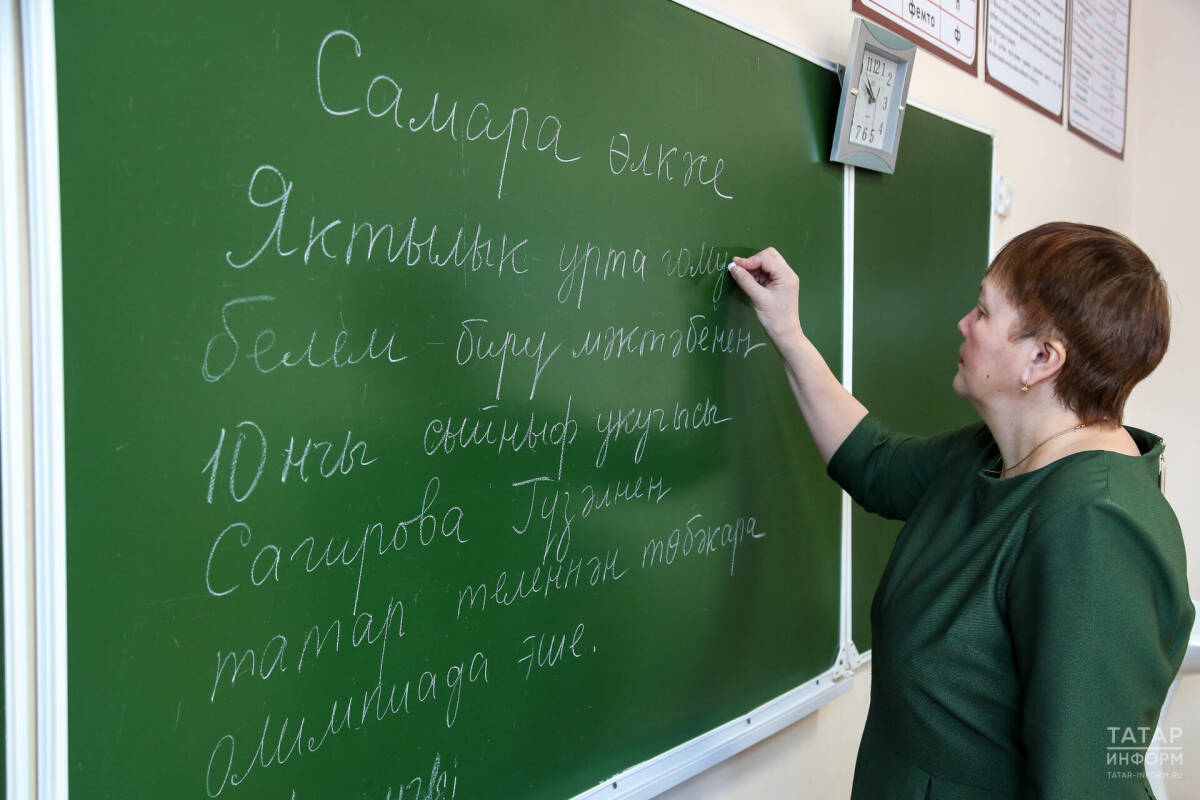 Самара өлкәсе
Яктылык урта гому
белем - бирү мәктәбенең
10 нчы сыйныф укучысы
Сагирова Гүзәлнең
татар теленнән төбәкара
олимпиада эше.
11 12 1
2
3
4
7 6 5
фемто ф
ТАТАР
ИНФОРМ
TATAR-INFORM.RU